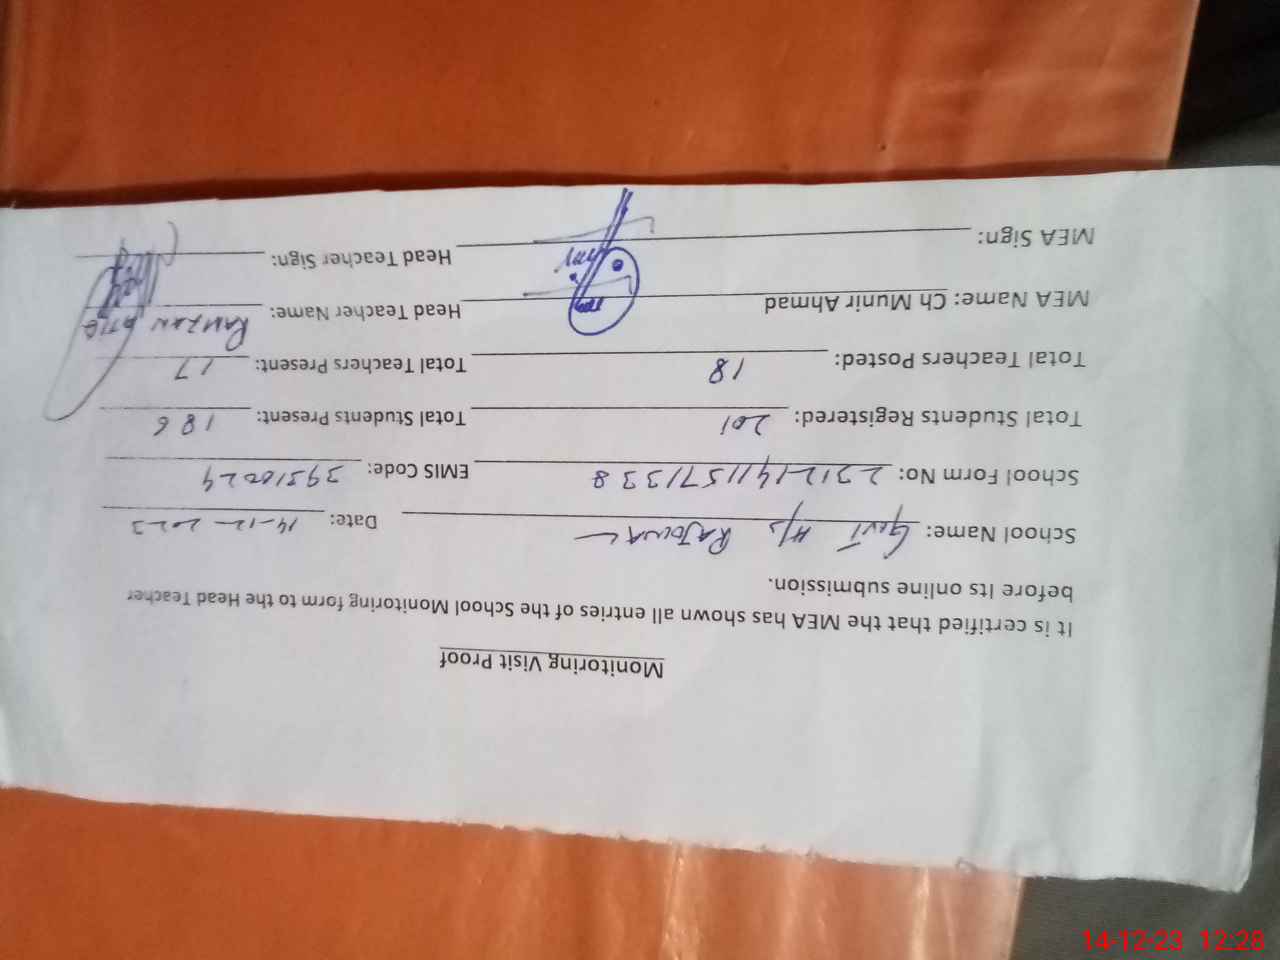 Monitoring Visit Proof
It is certified that the MEA has shown all entries of the School Monitoring form to the Head Teacher
before Its online submission.
School Name: Govt H/s RAJOWAL Date: 14-12-2023
School Form No: 23121411571338 EMIS Code: 39310029
Total Students Registered: 201 Total Students Present: 186
Total Teachers Posted: 18 Total Teachers Present: 17
MEA Name: Ch Munir Ahmad Head Teacher Name: RAMZAN
MEA Sign: Head Teacher Sign:
14-12-23 12:28